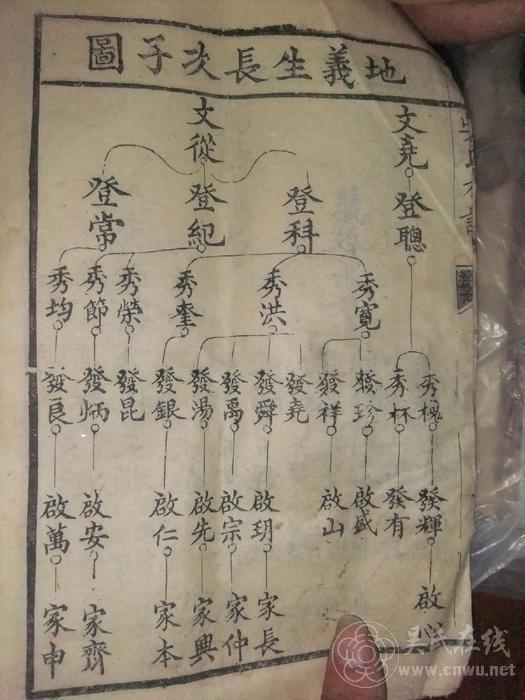 地義生長次子圖
文堯 文從
登聰 登科 登紀 登常
秀寬 秀洪 秀奎 秀榮 秀節 秀均
秀槐 秀杯 發珍 發祥 發堯 發舜 發禹 發湯 發銀 發昆 發炳 發良
發輝 發有 啟盛 啟山 啟玥 啟宗 啟先 啟仁 啟安 啟萬
啟心 家長 家仲 家興 家本 家齊 家申
吴氏在线
www.cnwu.net